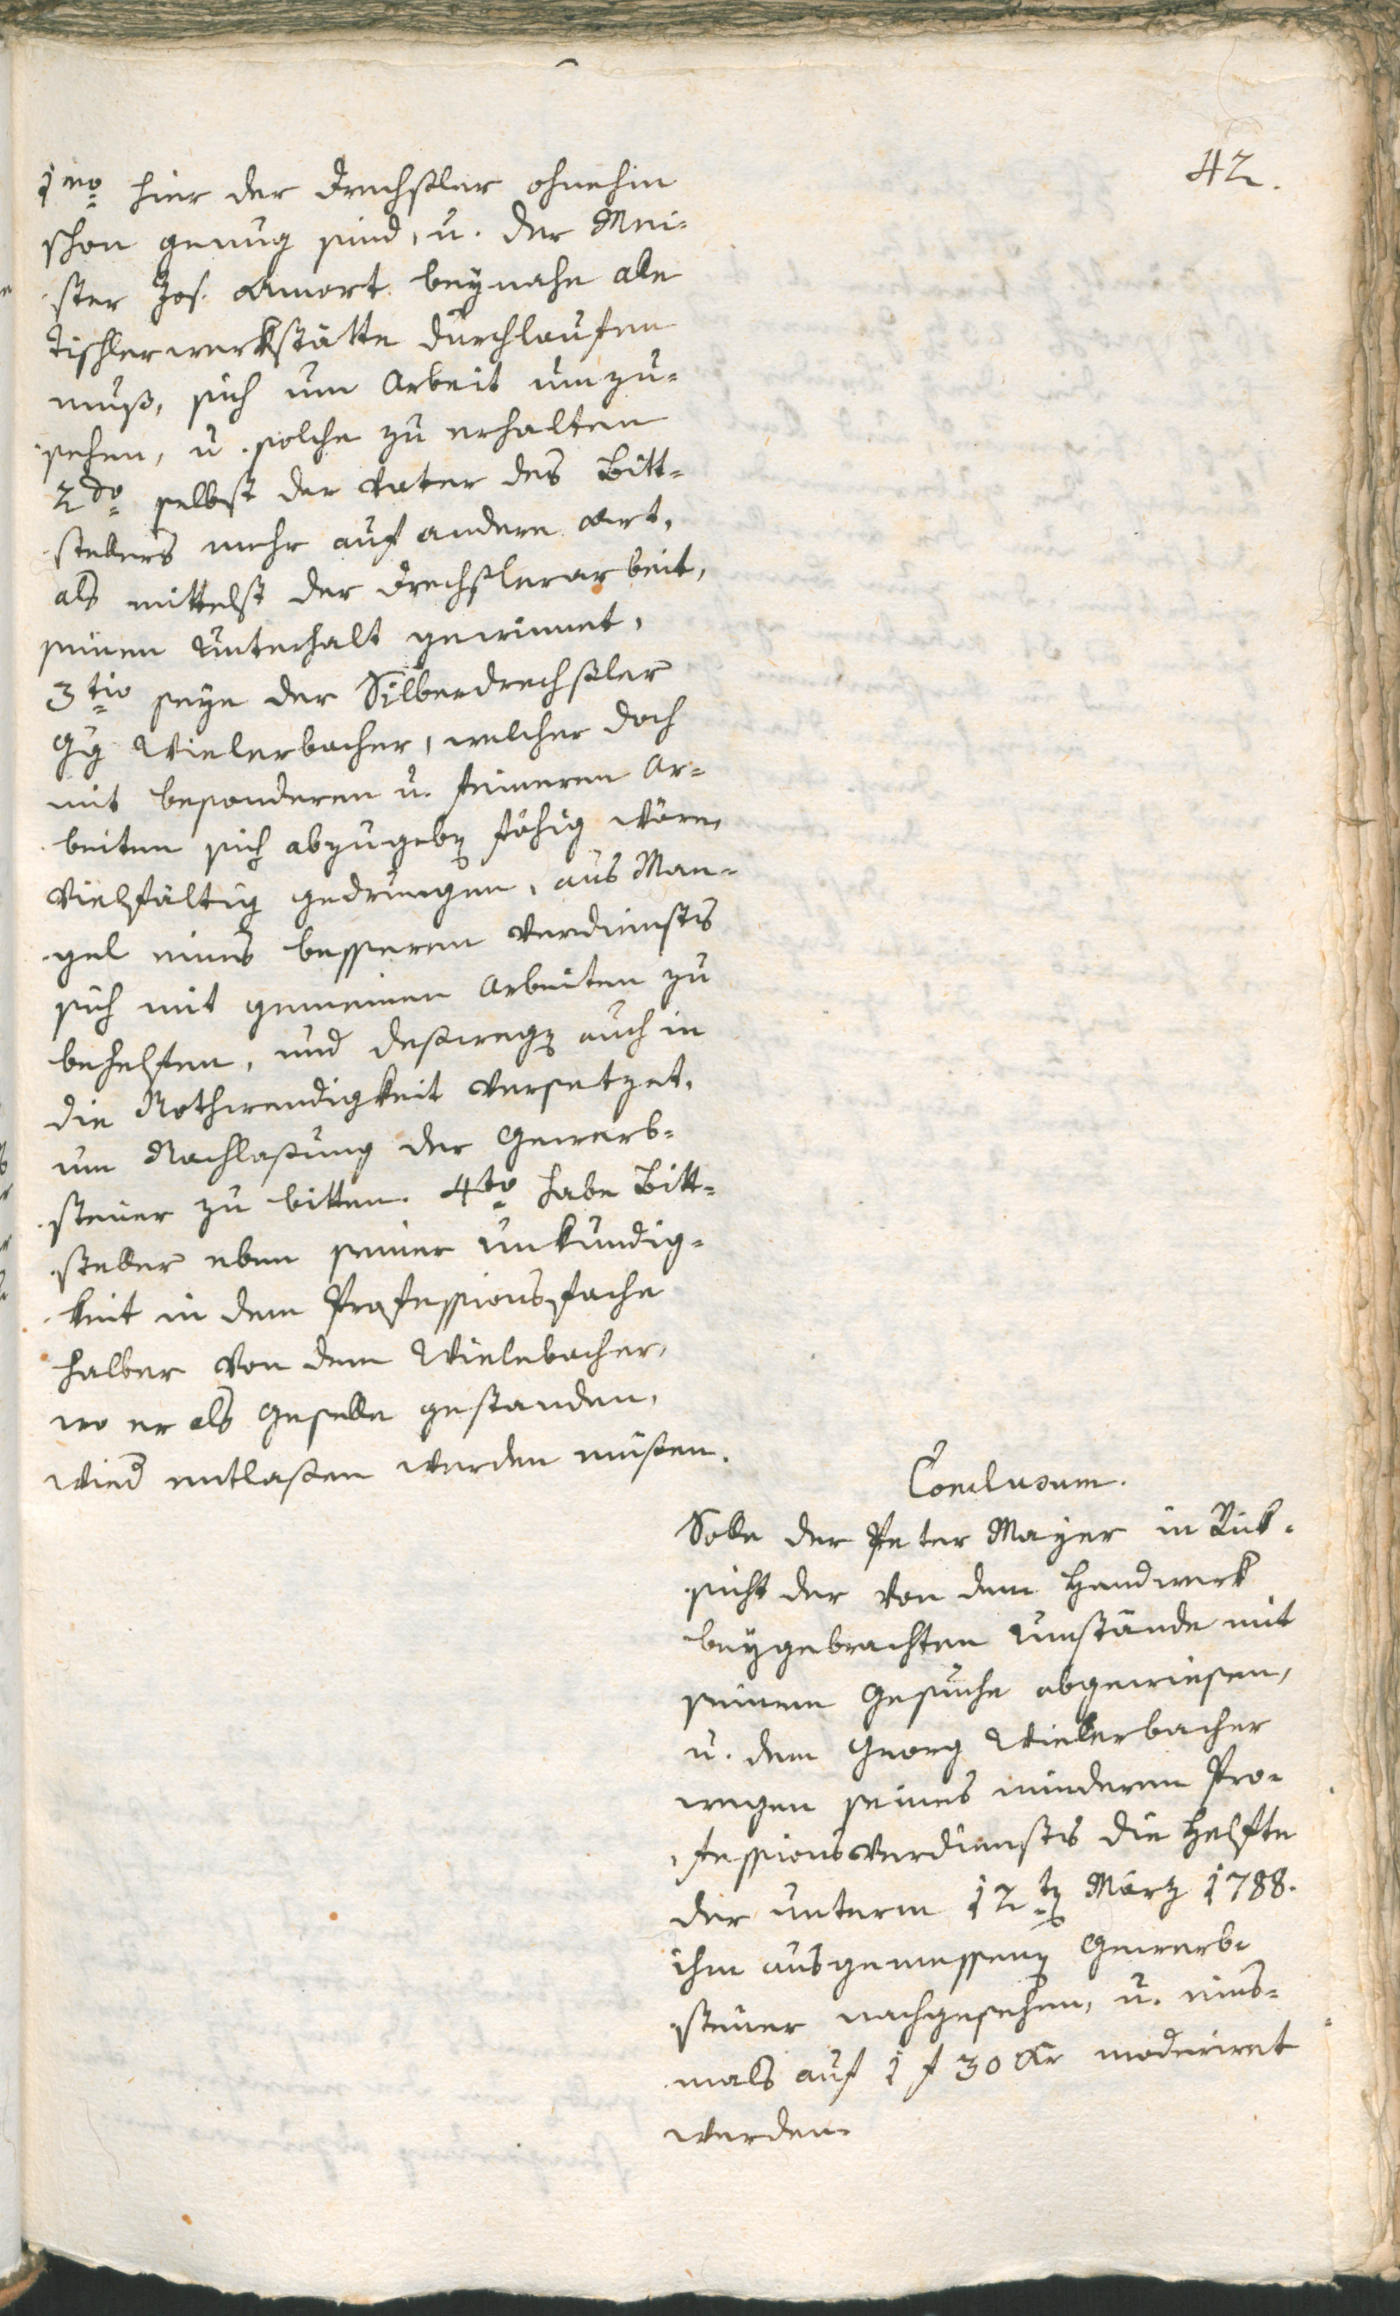 42.
1mo hier der Drechsler ohnehin
schon genug sind, u. der Mei-
ster Jos. Amort beynahe alle
Tischlerwerkstätte durchlaufen
muß, sich um Arbeit umzu-
sehen, u. solche zu erhalten
2do selbst der Vater des Bitt-
stellers mehr auf andere Art,
als mittelst der Drechslerarbeit,
seinen Unterhalt gewinnet,
3tio seye der Silberdrechsler
Gg Wielerbacher, welcher doch
mit besonderen u. feineren Ar-
beiten sich abzugeben fähig wäre,
vielfältig gedrungen, aus Man-
gel eines besseren Verdienstes
sich mit gemeinen Arbeiten zu
behelfen, und deßwegen auch in
die Nothwendigkeit versetzet,
um Nachlaßung der Gewerb-
steuer zu bitten. 4to habe Bitt-
steller eben seiner Unkündig-
keit in dem Professionsfache
halber von dem Wielebacher,
wo er als Geselle gestanden,
wied entlaßen werden müßen.
Conclusum.
Solle der Peter Mayer in Rük-
sicht der von dem Handwerk
beygebrachten Umstände mit
seinem Gesuche abgewiesen,
u. dem Georg Wiellerbacher
wegen seines minderen Pro-
fessionsverdienstes die Helfte
der unterm 12ten März 1788.
ihm ausgemessenen Gewerb-
steuer nachgesehen, u. eins-
mals auf 1 f 30 Kr moderiret
werden.